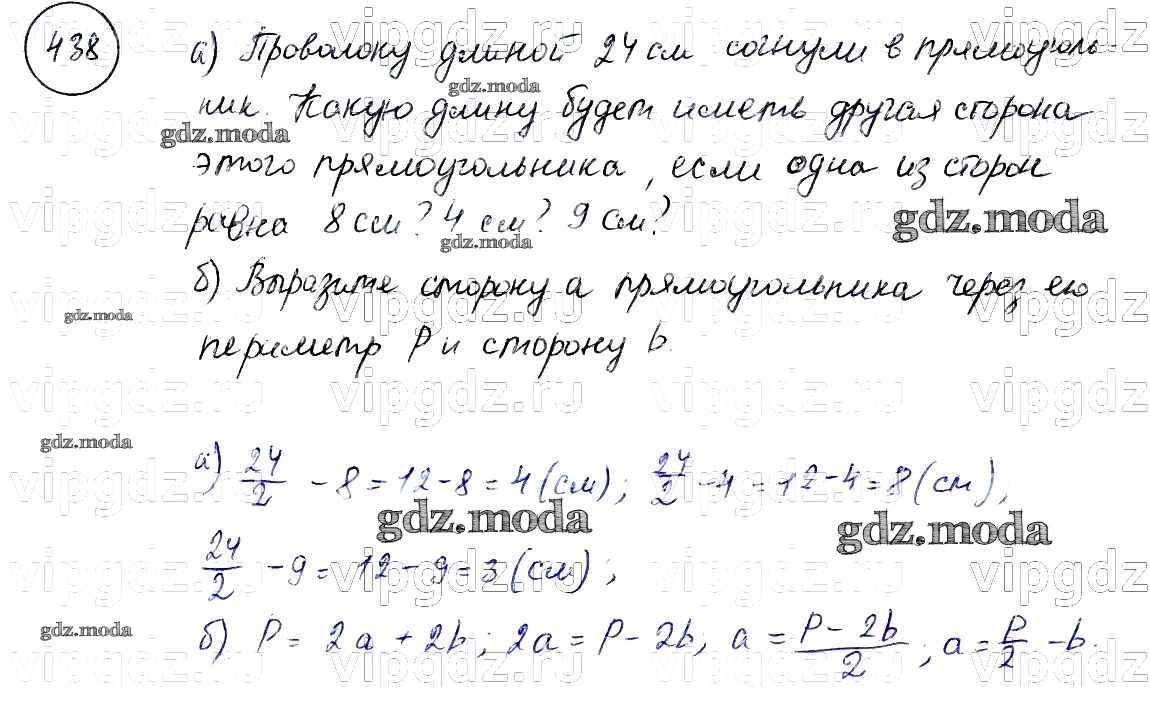 438
а) Проволоку длиной 24 см согнули в прямоуголь-
ник. Какую длину будет иметь другая сторона
этого прямоугольника, если одна из сторон
равна 8 см? 4 см? 9 см?
б) Выразите сторону a прямоугольника через ею
периметр P и сторону b.
а) 24/2 - 8 = 12 - 8 = 4 (см); 24/2 - 4 = 12 - 4 = 8 (см);
24/2 - 9 = 12 - 9 = 3 (см);
б) P = 2a + 2b; 2a = P - 2b; a = (P - 2b)/2; a = P/2 - b.
gdz.moda
vipgdz.ru